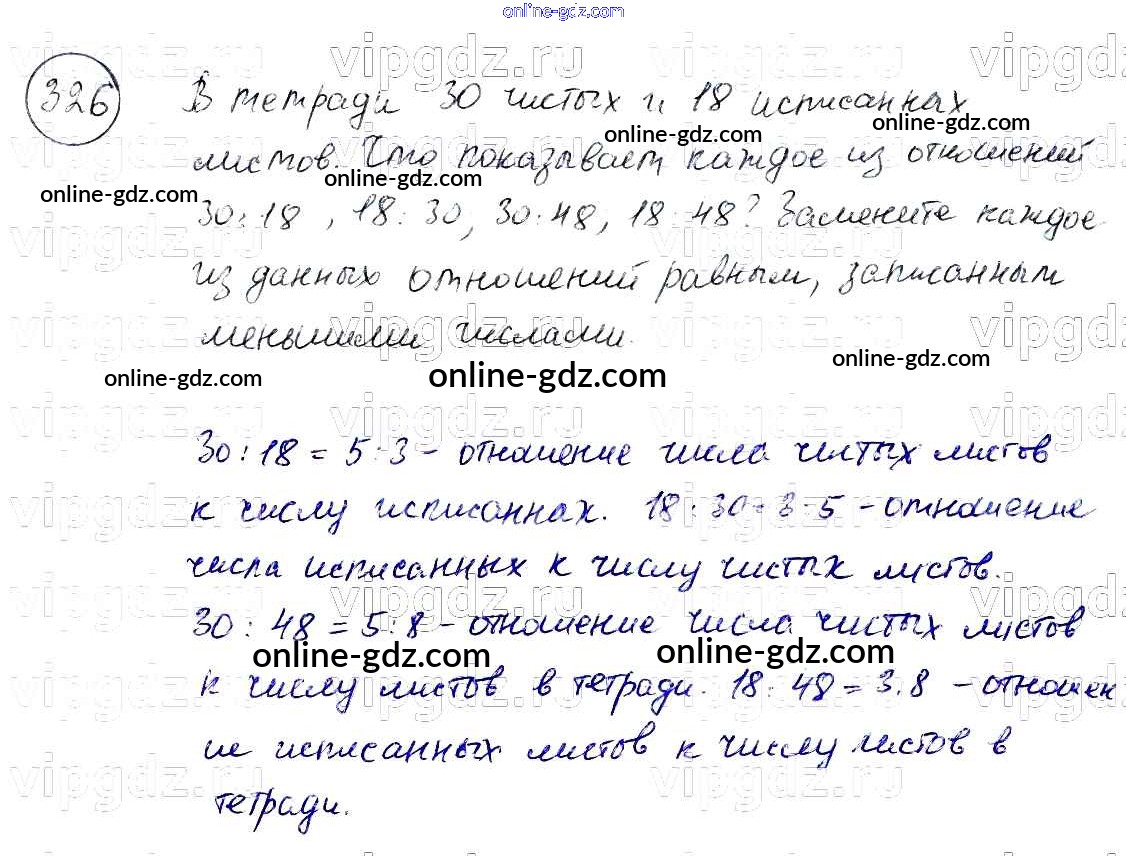 online-gdz.com
vipgdz.ru vipgdz.ru vipgdz.ru vipgdz
326 В тетради 30 чистых и 18 исписаннах
online-gdz.com online-gdz.com
листов. Что показывает каждое из отношений
online-gdz.com online-gdz.com
30:18, 18:30, 30:48, 18:48? Замените каждое
vipgdz.ru vipgdz.ru vipgdz.ru vipgdz
из данных отношений равным, записанным
меньшими числами.
vipgdz.ru vipgdz.ru vipgdz.ru vipgdz
online-gdz.com online-gdz.com online-gdz.com
vipgdz.ru vipgdz.ru vipgdz.ru vipgdz
30:18 = 5:3 - отношение числа чистых листов
vipgdz.ru vipgdz.ru vipgdz.ru vipgdz
к числу исписаннах. 18:30=3:5 - отношение
числа исписанных к числу чистых листов.
vipgdz.ru vipgdz.ru vipgdz.ru vipgdz
30:48 = 5:8 - отношение числа чистых листов
online-gdz.com online-gdz.com
к числу листов в тетради. 18:48 = 3:8 - отношен
vipgdz.ru vipgdz.ru vipgdz.ru vipgdz
ие исписанных листов к числу листов в
vipgdz.ru vipgdz.ru vipgdz.ru vipgdz
тетради.